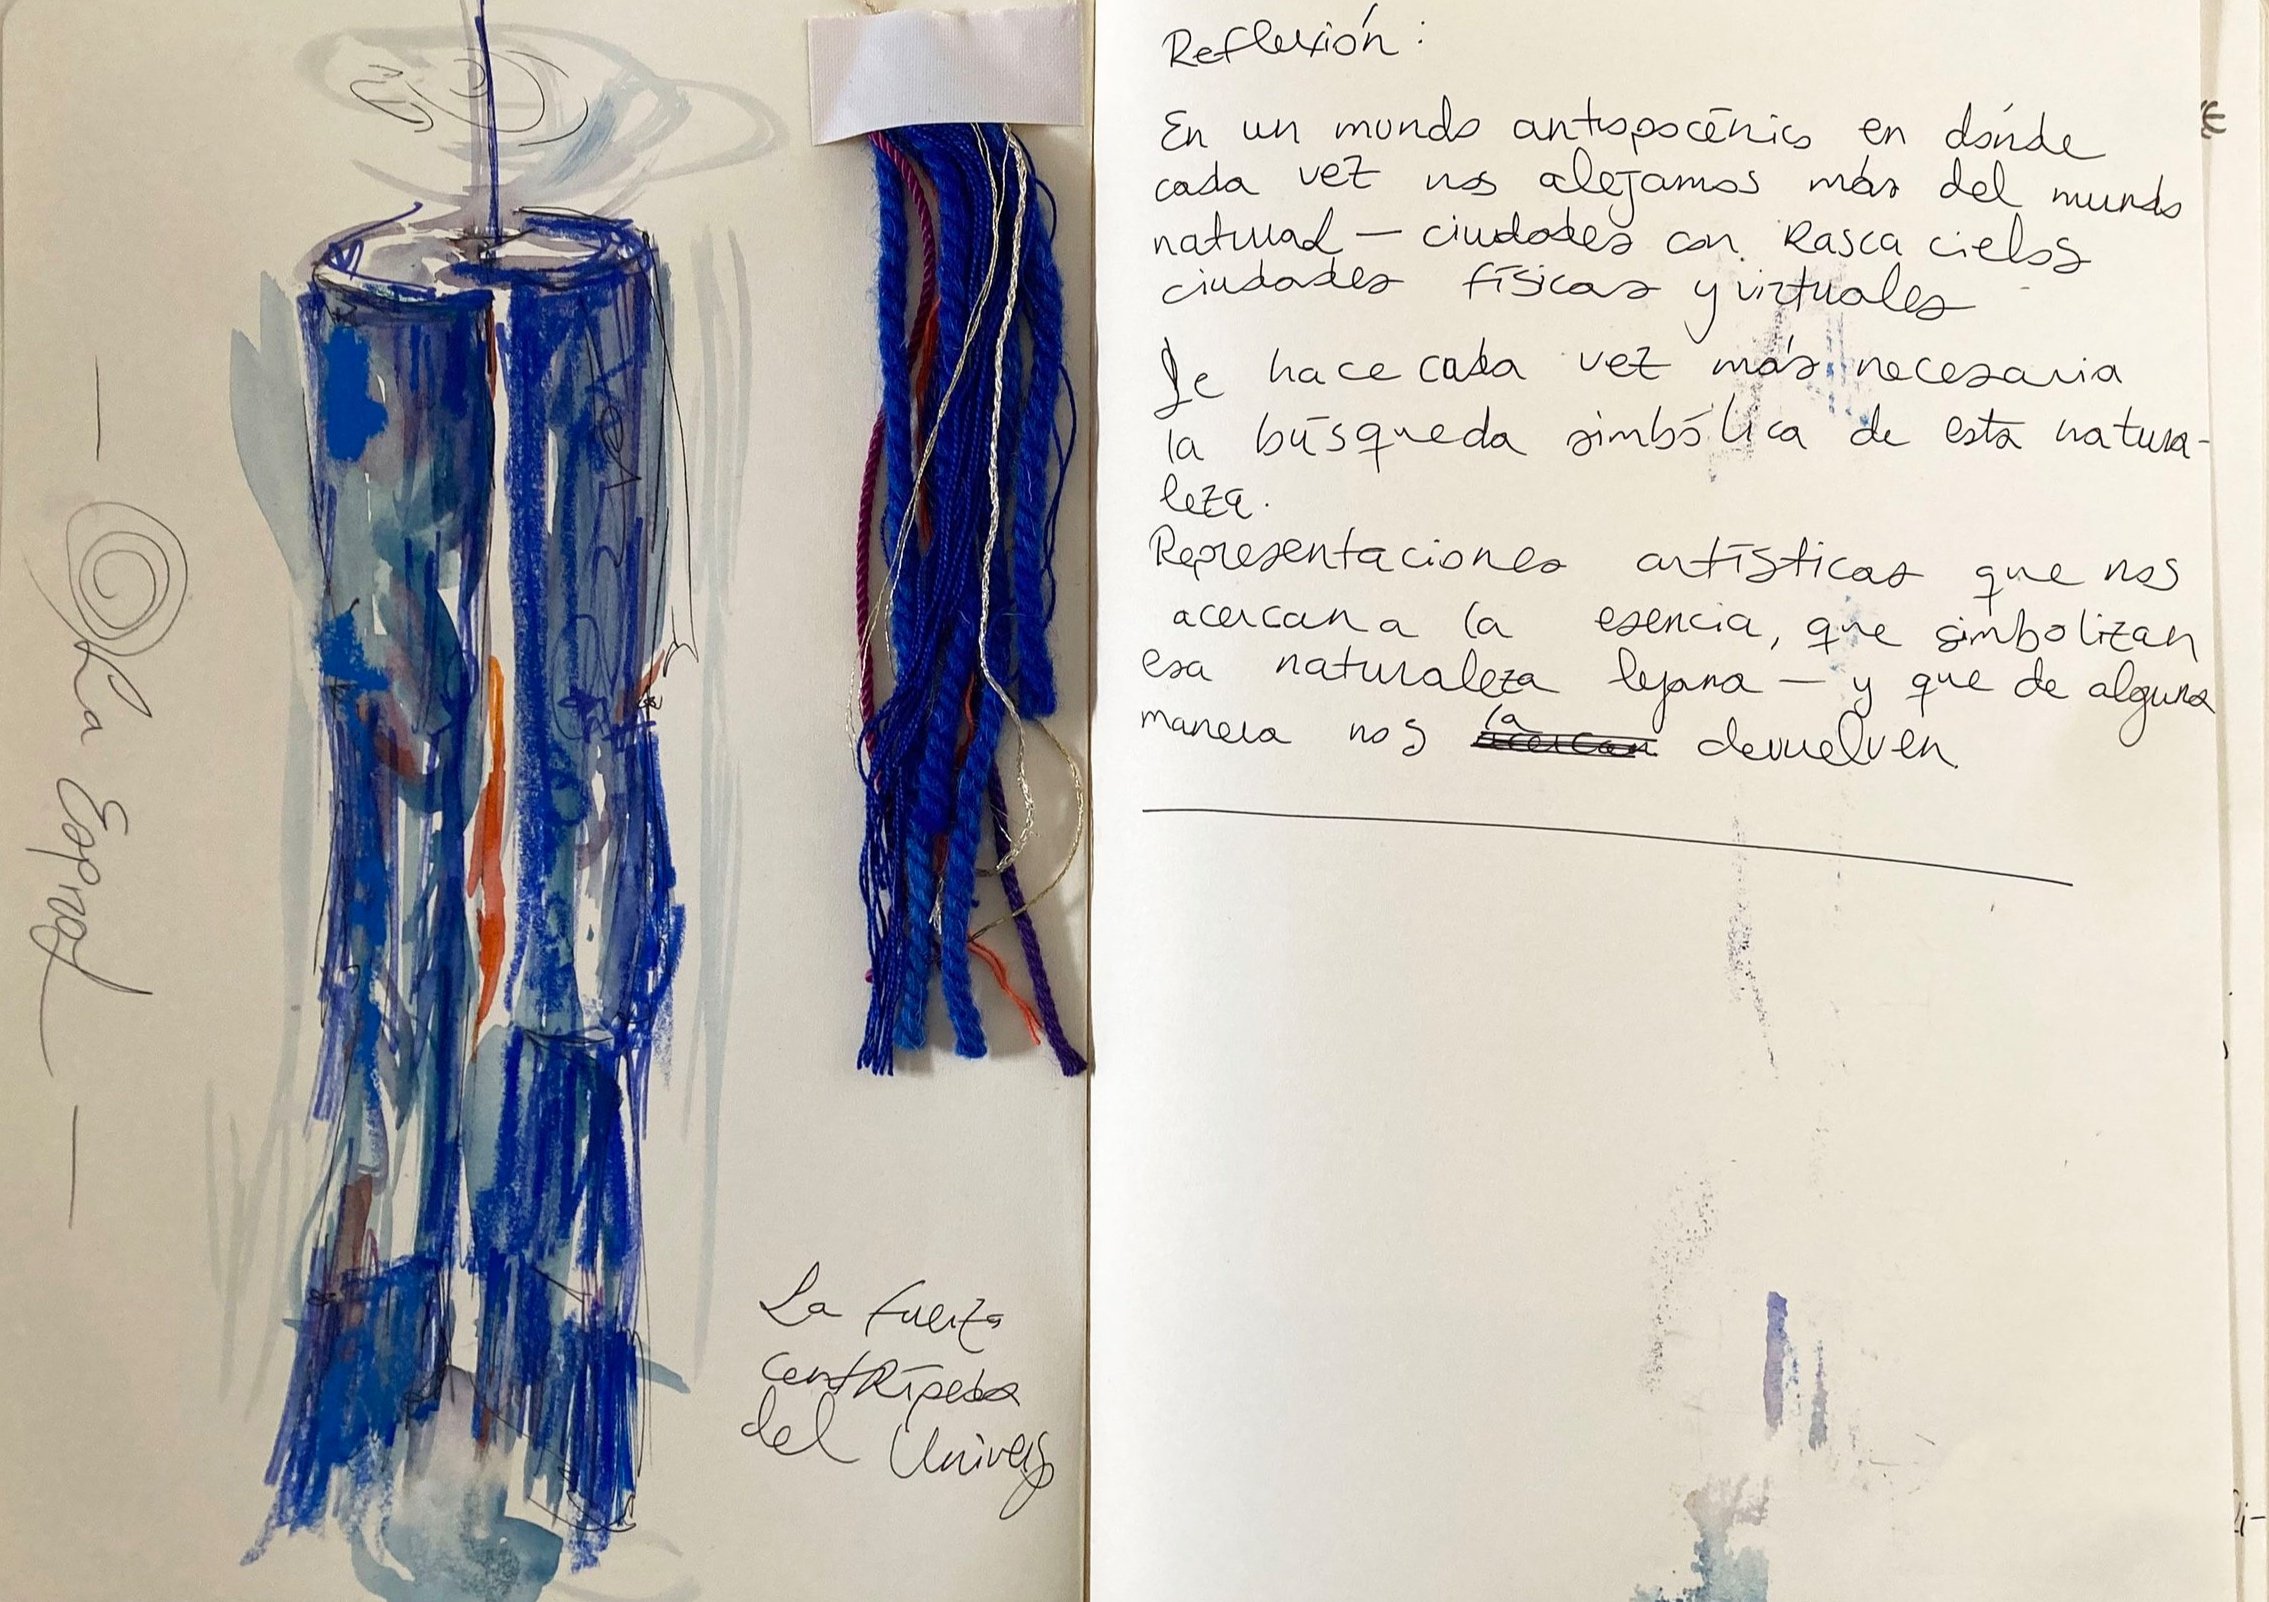 La Espiral
La fuerza
centRípeda
del Univers
Reflexión:
En un mundo antropocénico en dónde
cada vez nos alejamos más del mundo
natural — ciudades con Rasca cielos
ciudades físicas y virtuales
Se hace cada vez más necesaria
la búsqueda simbólica de esta natura-
leza.
Representaciones artísticas que nos
acercan a la esencia, que simbolizan
esa naturaleza lejana — y que de alguna
manera nos la acercan devuelven.